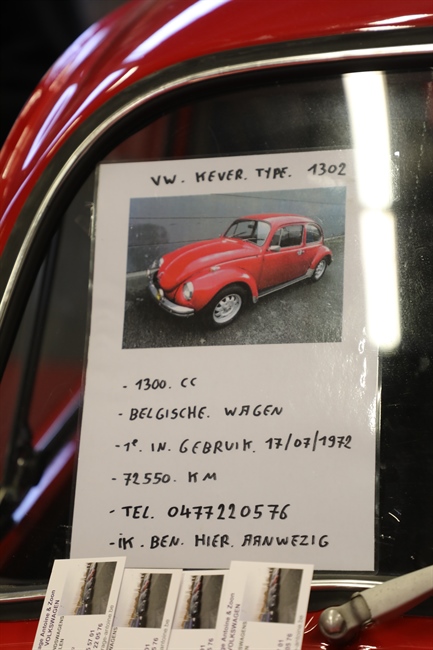 VW. KEVER. TYPE. 1302
- 1300. CC
- BELGISCHE. WAGEN
- 1e. IN. GEBRUIK. 17/07/1972
- 72550. KM
- TEL. 0477220576
- iK. BEN. HIER. AANWEZIG
Antoine & Zoon
VOLKSWAGEN